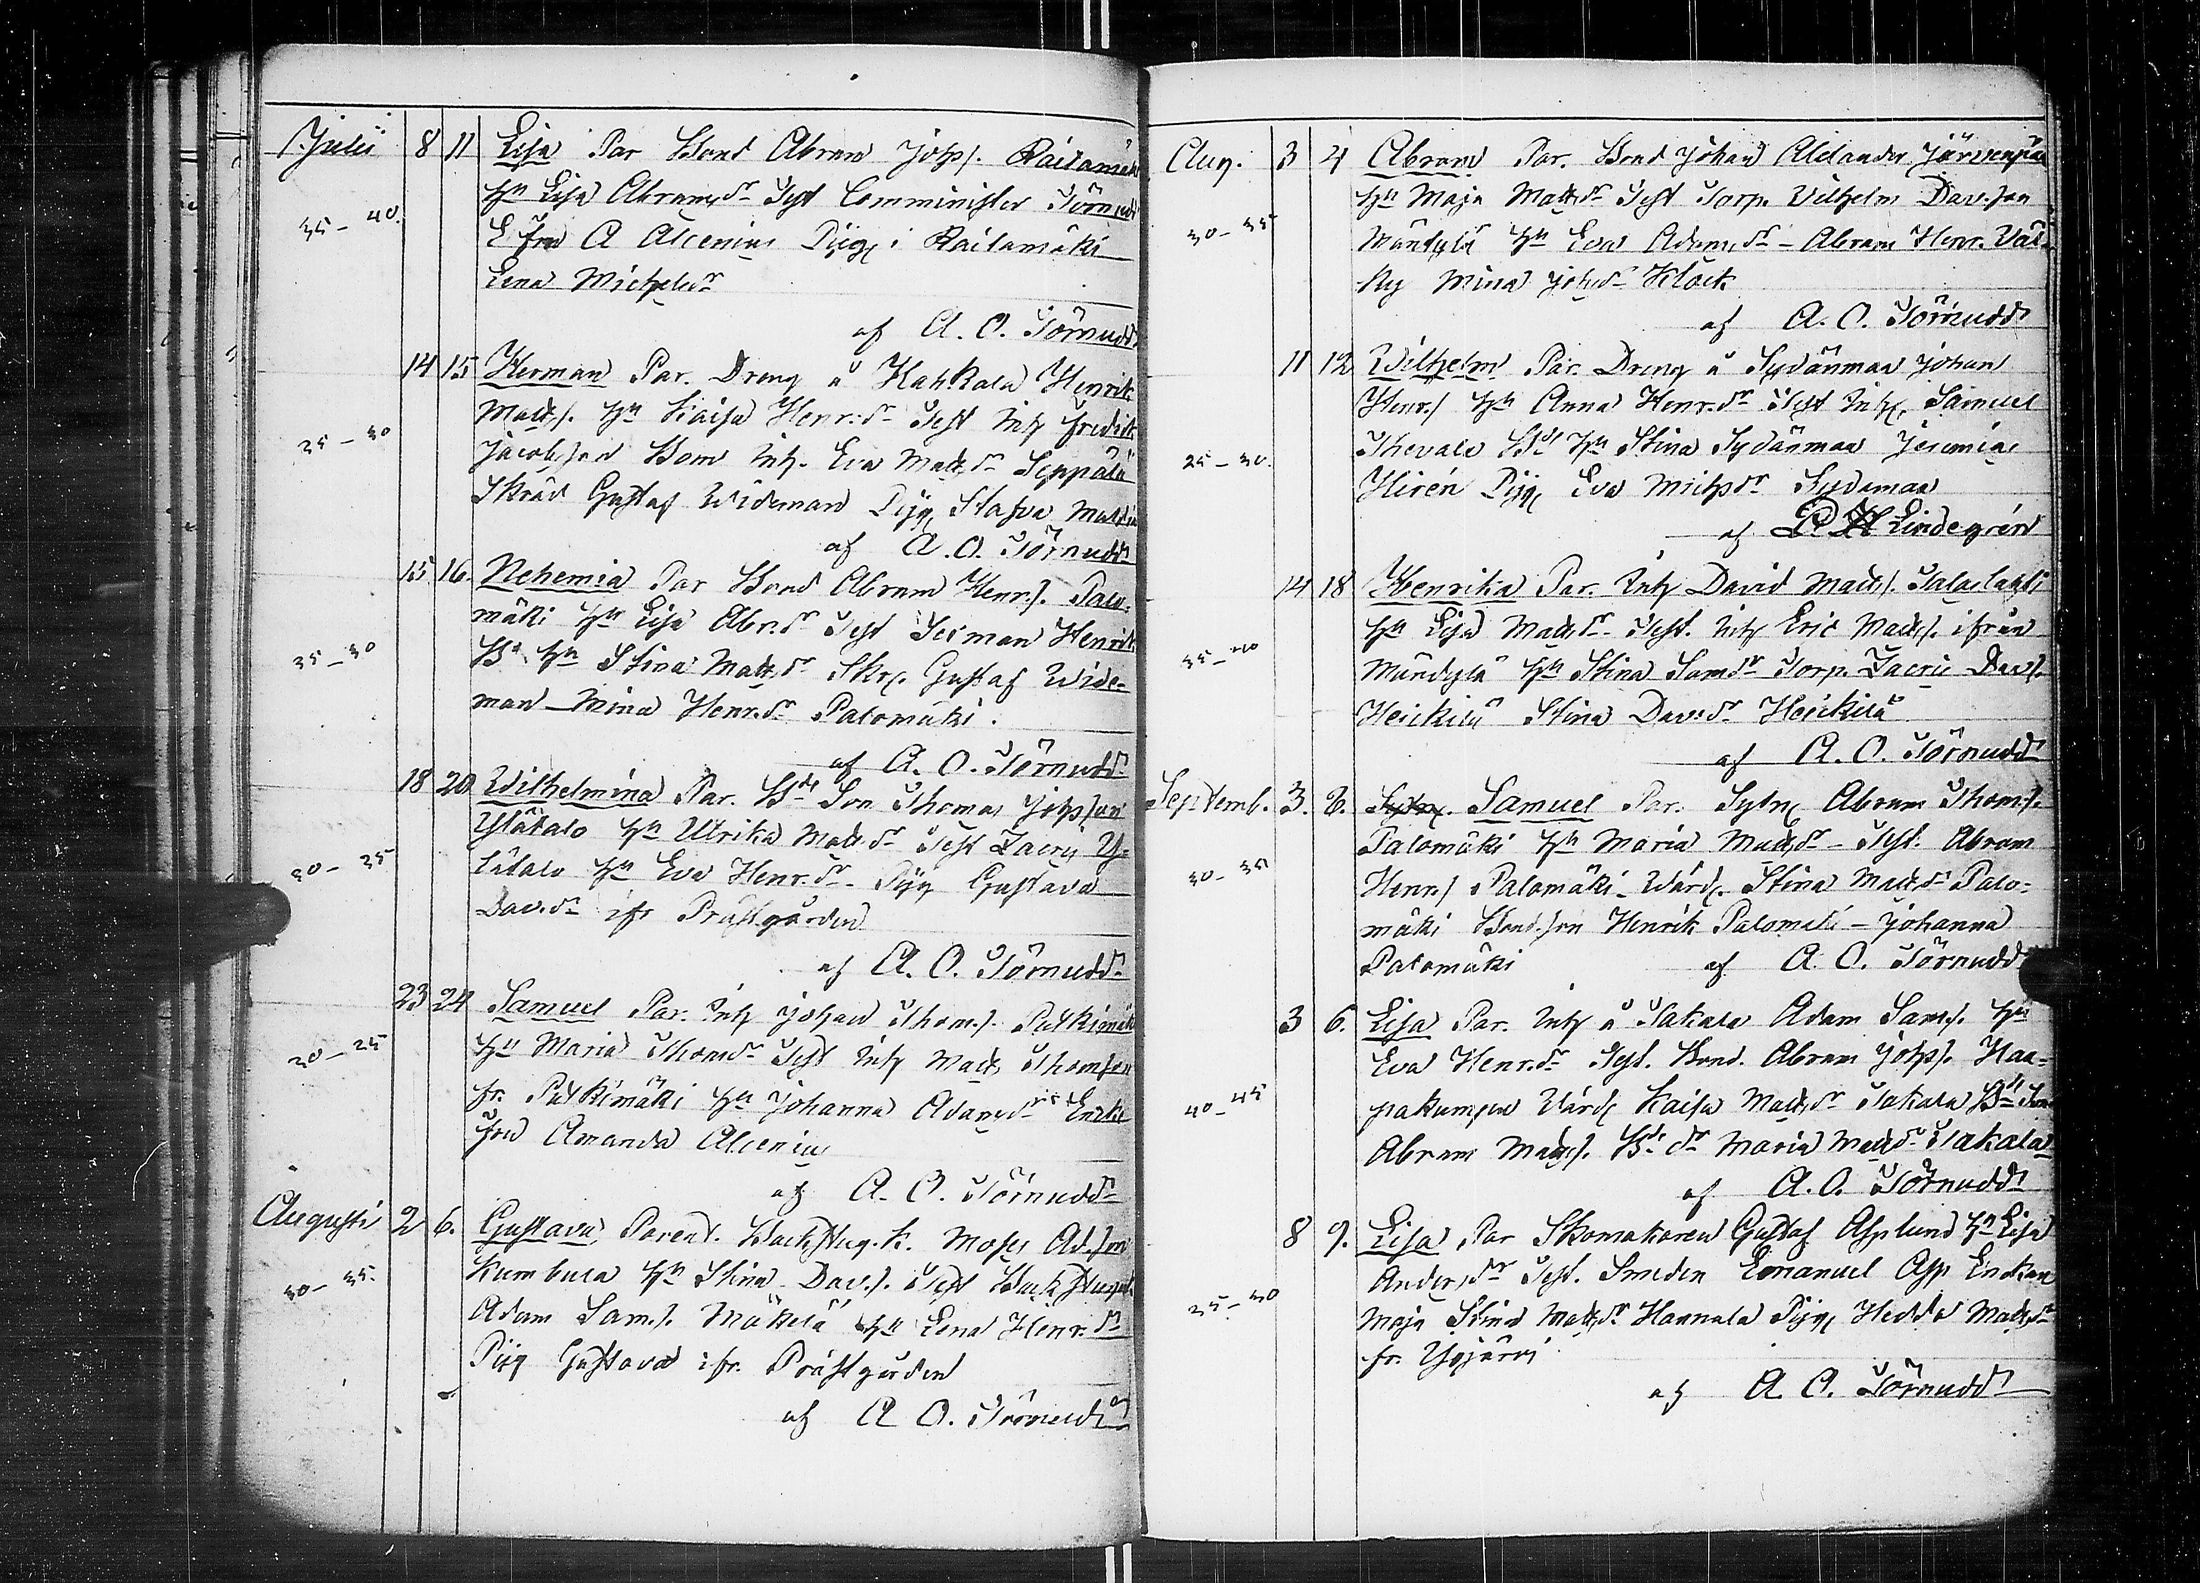 Julii 8 11 Lisa Par Bond Abram Johs. Railamäki
hu Lisa Abramsdr Test Comminister Törnudd
35-40. E fru A Alcenius Pig i Railamäki
Lena Michelsdr
af A. O. Törnudd
14 15 Herman Par. Dreng å Kahkola Henrik
Matts. hu Kaisa Henr.dr Test Inh Fredrik
25-30 Jacobsson Bom Inh. Eva Matsdr Seppälä
Skräd Gustaf Wideman Pig Stafva
af A. O. Törnudd
15 16. Nehemia Par Bond Abram Henr.s. Palo-
mäki hu Lisa Abr.dr Test Herman Henrik
25-30 hu Stina Mattsdr Skr. Gustaf Wide-
man - Mina Henr.dr Palomäki.
af A. O. Törnudd
18 20 Wilhelmina Par. Bds Son Thomas Johsson
Ylätalo hu Ulrika Matsdr Test Zacris Y-
30-35 lätalo hu Eva Henr.dr Pig Gustava
Dav.dr ifr Prästgården
af A. O. Törnudd
23 24 Samuel Par. Inh Johan Thom.s. Pulkimäki
hu Maria Thomsdr Test Inh Matts Thomson
20-25 fr. Pulkimäki hu Johanna Adamsdr Enke
fru Amanda Alcenius
af A. O. Törnudd
Augusti 2 6. Gustava Parent. Backstug.k. Moses Ad.son
Kumbula hu Stina Dav.s. Test Backstug
30-35. Adam Sam.s. Mäkelä hu Lena Henr.dr
Pig Gustava ifr. Prästgården
af A O. Törnudd
Aug. 3 4 Abram Par. Bond Johan Alexander Järvenpää
hu Maja Mattsdr Test Torp. Wilhelm Davison
30-35 Mäntylä hu Eva Adamsdr - Abram Henr.
Mina Johsdr Klock
af A. O. Törnudd
11 12 Wilhelm Par. Dreng å Sydänmaa Johan
Henr.s hu Anna Henr.dr Test Inh. Samuel
25-30. hu Stina Sydänmaa Jeremias
Hirén Pig Eva Michsdr Sydamaa
af Lindegrén
14 18 Henrika Par. Inh David Matts. Salaslahti
hu Lisa Mattsdr Test. Inh Eric Matts. ifrån
35-40 Mändylä hu Stina Samdr Torp. Zacris Dav.s.
Heickilä Stina Dav.dr Heickilä
af A. O. Törnudd
Septemb. 3. 8. Sytn. Samuel Par. Sytn Abram Thom.s.
Palomäki hu Maria Mattsdr - Test. Abram
30-35 Henr.s Palomäki - Wärd. Stina Mattsdr Palo-
mäki Bond.son Henrik Palomäki - Johanna
Palomäki af A. O. Törnudd
3 6. Lisa Par. Inh å Takala Adam Sam.s. hu
Eva Henr.dr Test. Bond. Abram Johs. Haa-
40-45 pakumpu Värd Kaisa Mattsdr Takala Bds Son
Abram Matts. Bds dr Maria Mattsdr Takala
af A. O. Törnudd
8 9. Lisa Par Skomakaren Gustaf Asplund hu Lisa
Andersdr Test. Smeden Emanuel Asp Enkan
25-30 Maja Stina Mattsdr Hannula Pig Hedda Mattsdr
fr. Ypjärvi
af A O. Törnudd